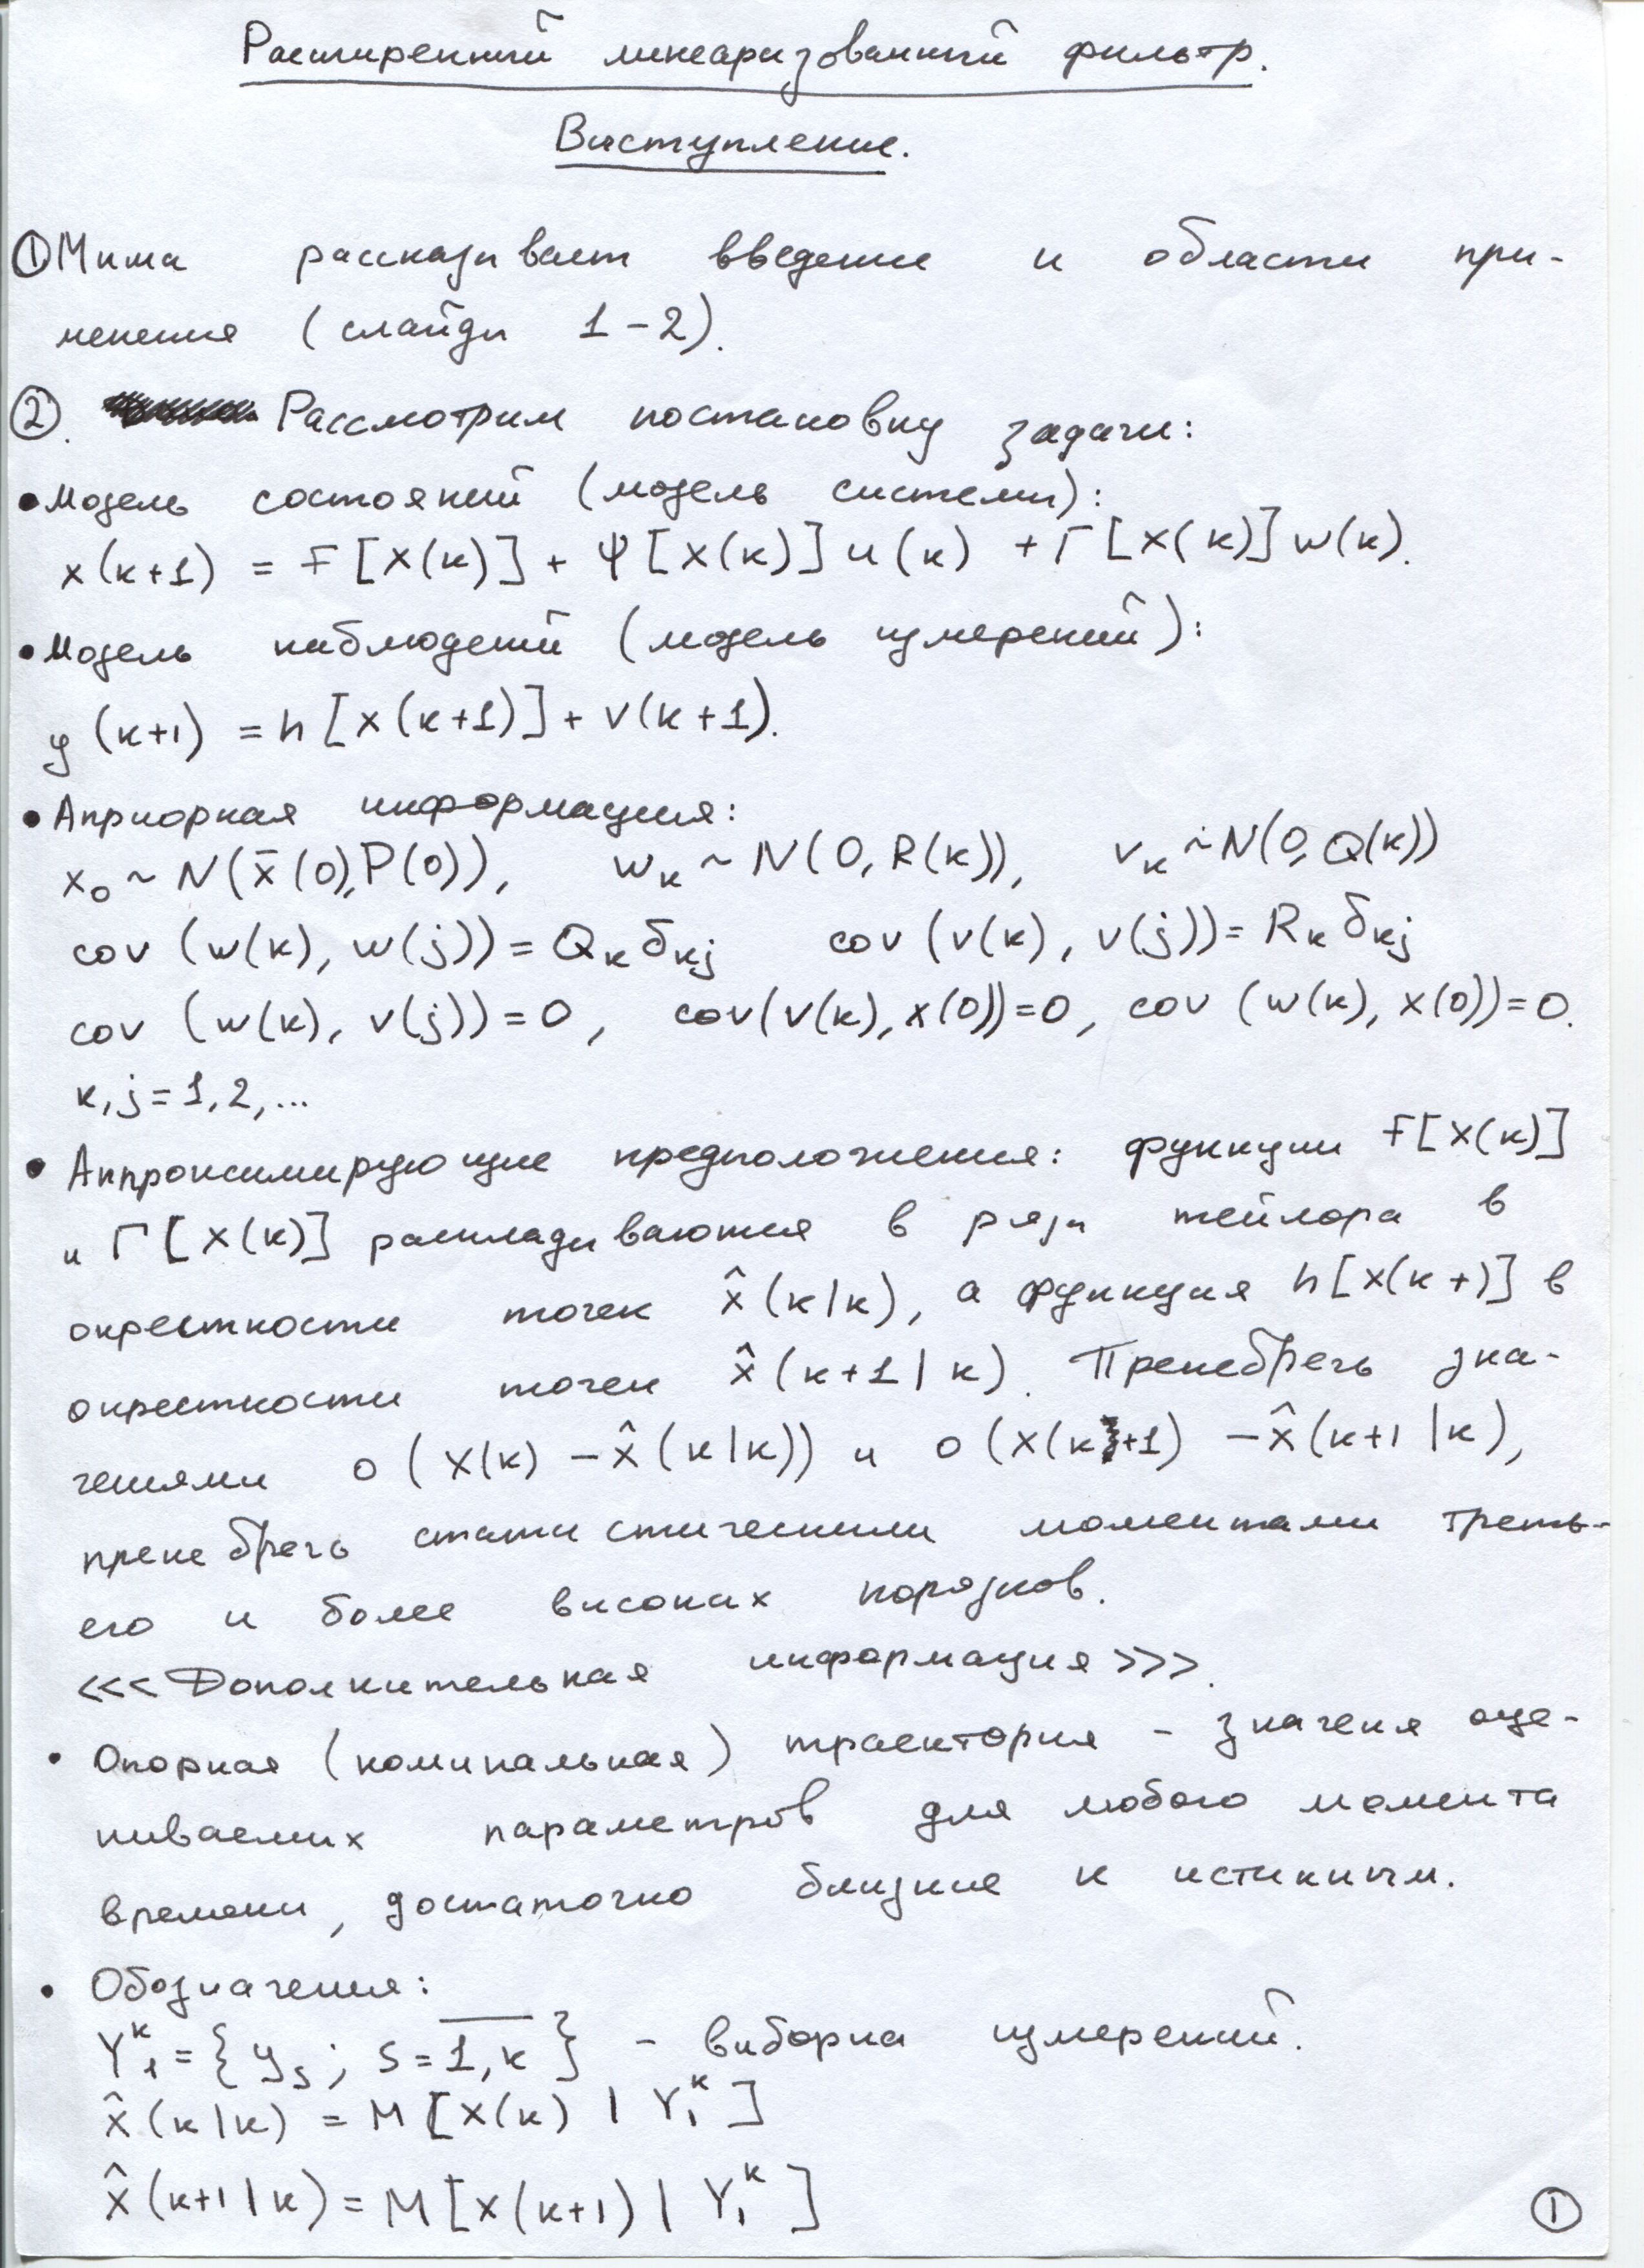 Расширенный линеаризованный фильтр.
Выступление.
① Миша рассказывает введение и области при-
менения (слайды 1-2).
②. Рассмотрим постановку задачи:
• Модель состояний (модель системы):
x(k+1) = F[x(k)] + Ψ[x(k)]u(k) + Γ[x(k)]w(k).
• Модель наблюдений (модель измерений):
y(k+1) = h[x(k+1)] + v(k+1).
• Априорная информация:
x₀ ~ N(x̄(0), P(0)), wₖ ~ N(0, R(k)), vₖ ~ N(0, Q(k))
cov (w(k), w(j)) = Qₖ δₖⱼ cov (v(k), v(j)) = Rₖ δₖⱼ
cov (w(k), v(j)) = 0, cov(v(k), x(0)) = 0, cov (w(k), x(0)) = 0.
k, j = 1, 2, ...
• Аппроксимирующие предположения: функции F[x(k)]
и Γ[x(k)] раскладываются в ряды тейлора в
окрестности точек x̂(k|k), а функция h[x(k+)] в
окрестности точек x̂(k+1|k). Пренебречь зна-
чениями o(x(k) - x̂(k|k)) и o(x(k+1) - x̂(k+1|k),
пренебречь статистическими моментами треть-
его и более высоких порядков.
<<< Дополнительная информация >>>.
• Опорная (номинальная) траектория - значения оце-
ниваемых параметров для любого момента
времени, достаточно близкие к истинным.
• Обозначения:
Y₁ᵏ = {yₛ; s = 1,k} - выборка измерений.
x̂(k|k) = M[x(k) | Y₁ᵏ]
x̂(k+1|k) = M[x(k+1) | Y₁ᵏ]
①